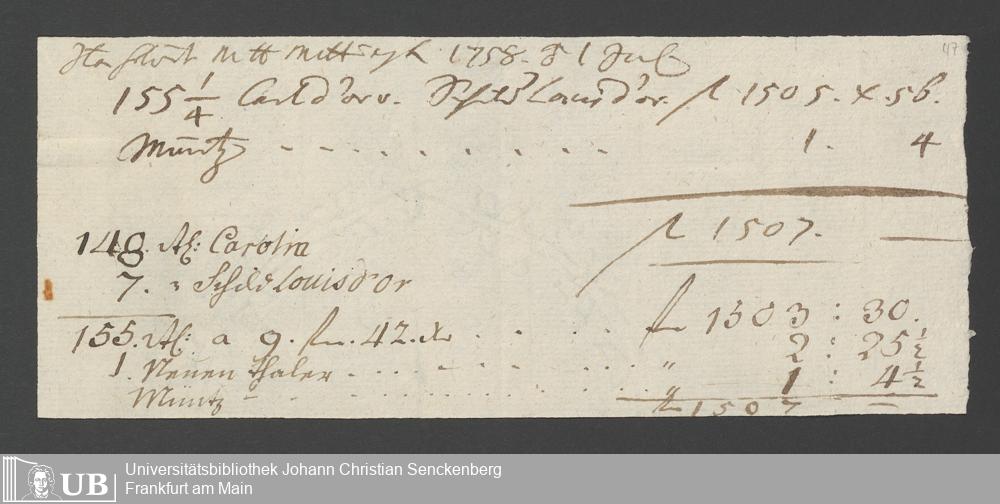 1758. d 1 Jul 47
155 1/4 Carld'or u. Schild Louisd'or. fl 1505. x. 56.
Müntz - - - - - - - - - 1. 4
fl 1507. —
148. St: Carolin
7. " Schild Louisd'or
155. St: a 9. fl. 42. xr . . . . fl 1503 : 30.
1. Neuen thaler - - - . - - . . . . " 2 : 25 1/2
Müntz - - . . . . . . . . . . " 1 : 4 1/2
fl 1507 —
UB Universitätsbibliothek Johann Christian Senckenberg
Frankfurt am Main